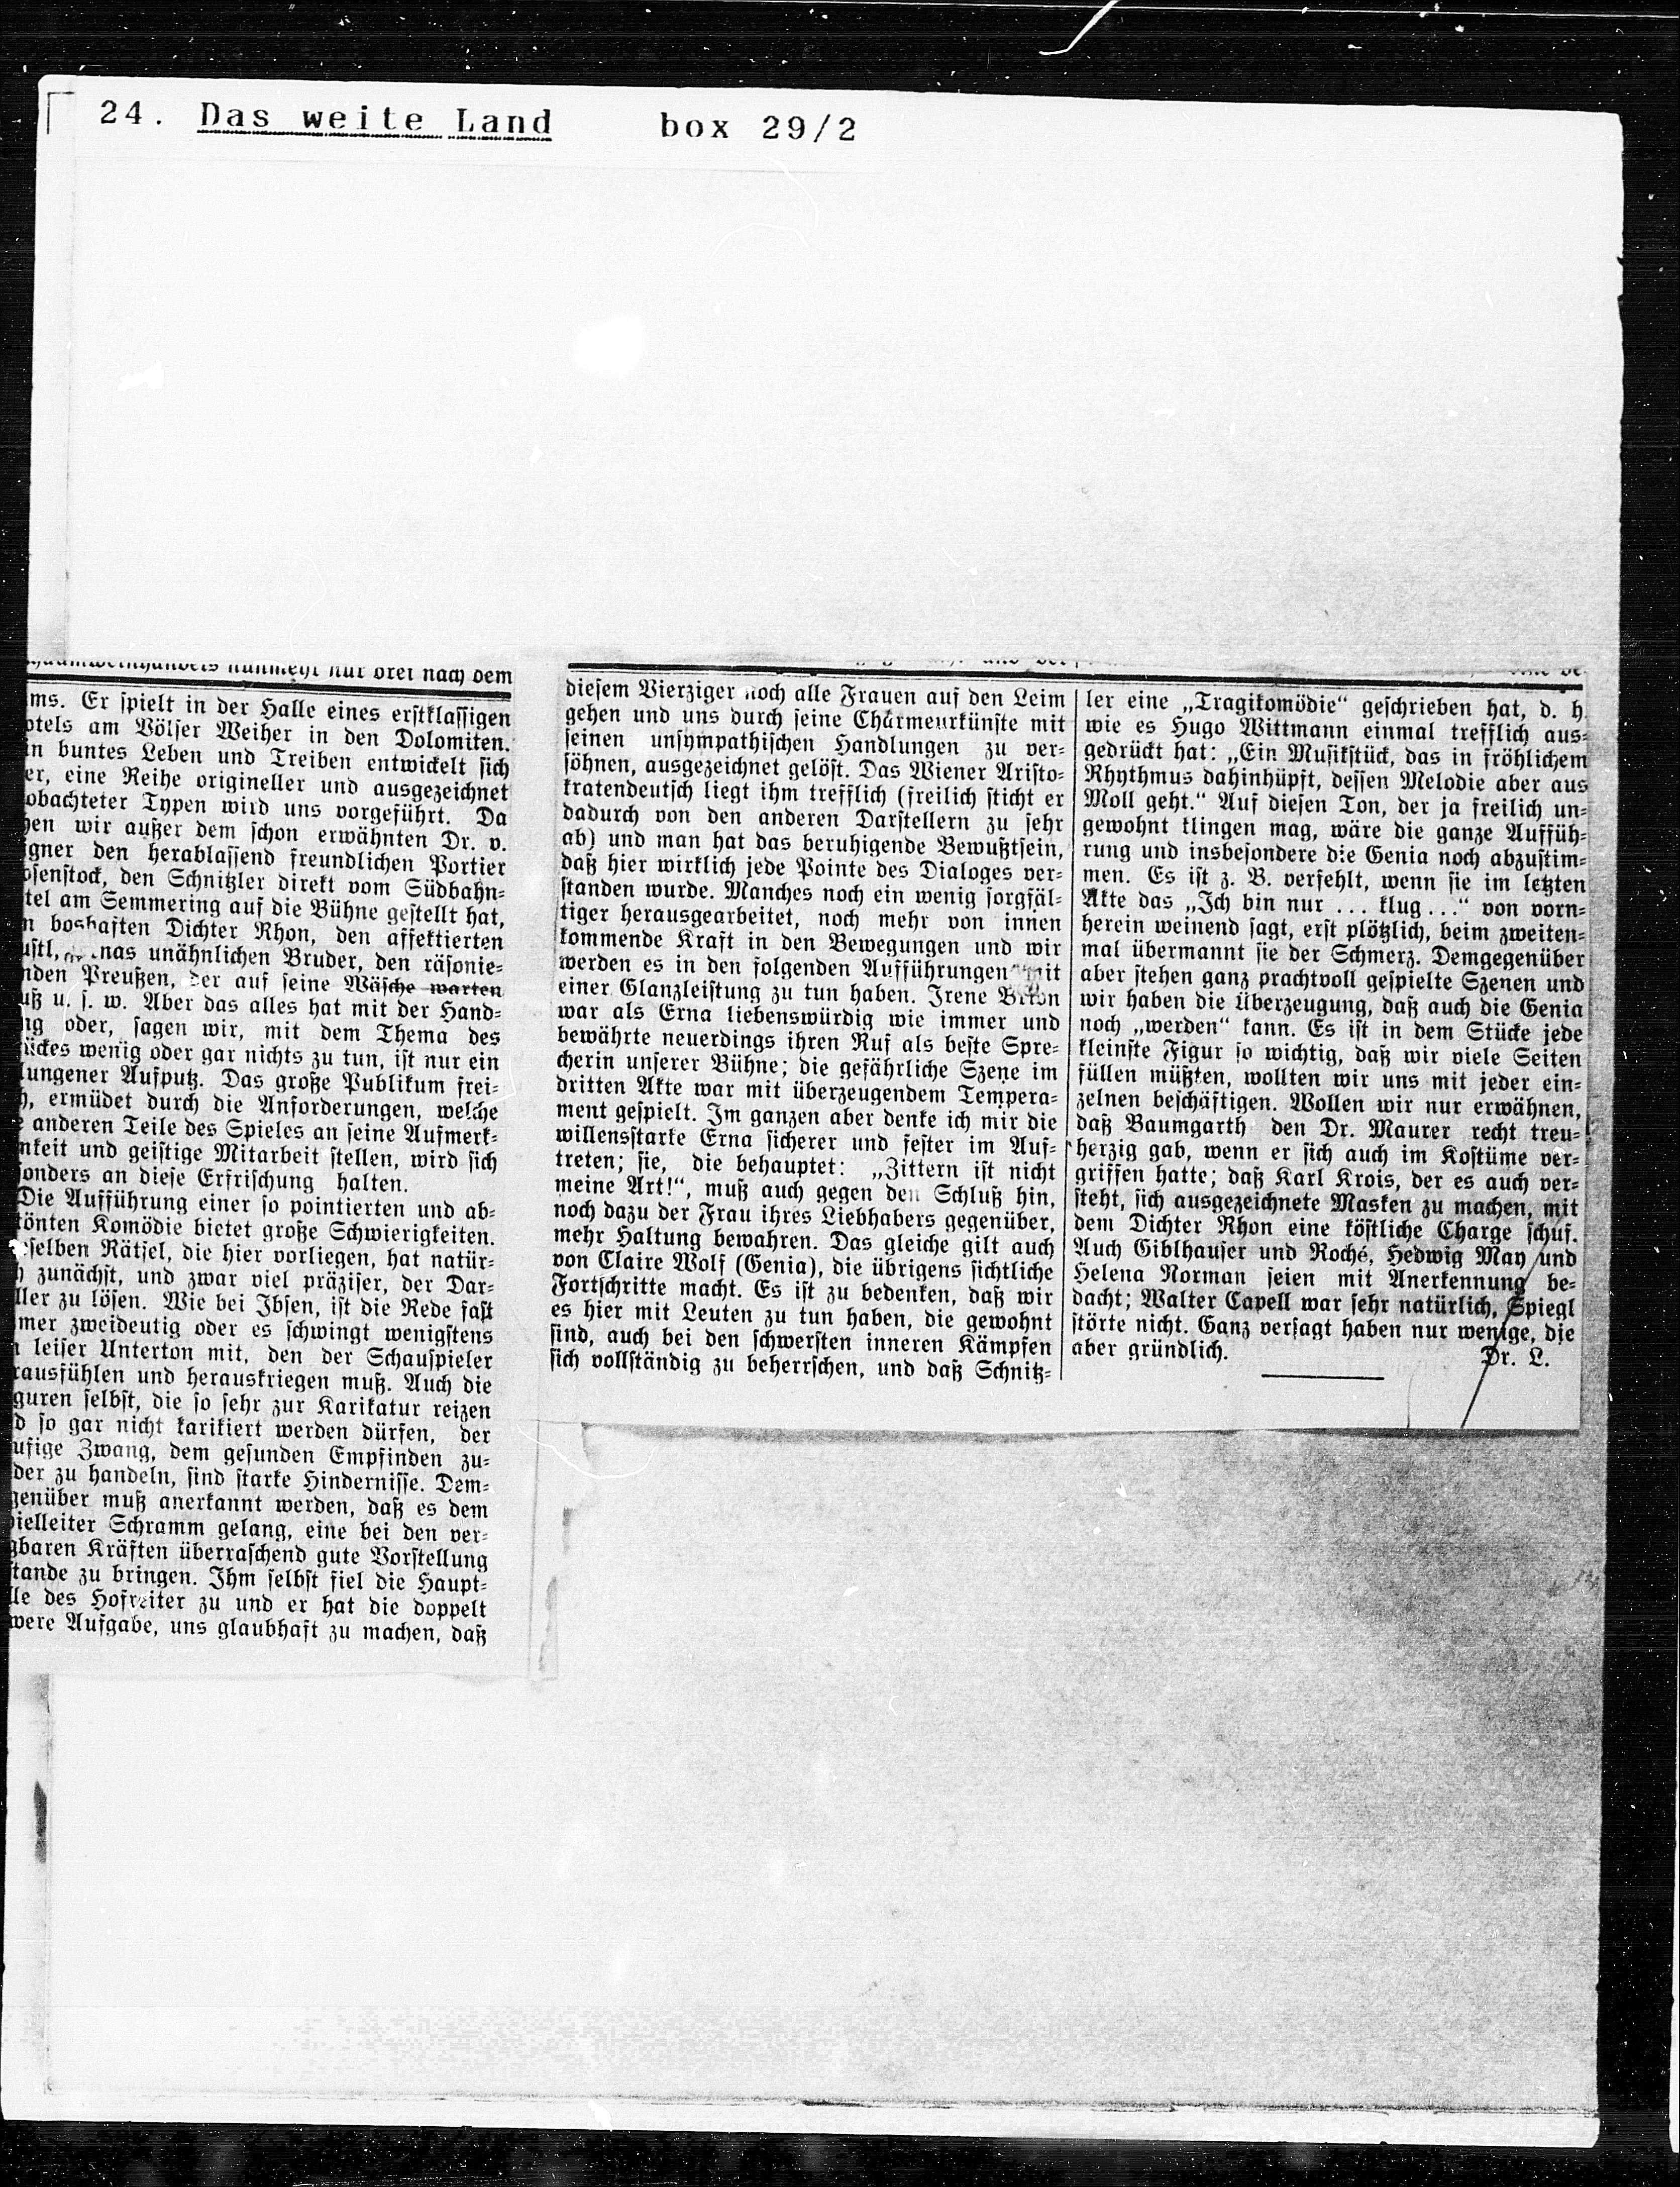 24. Das weite Land box 29/2
nunmehr nur drei nach dem
ms. Er spielt in der Halle eines erstklassigen
otels am Völser Weiher in den Dolomiten.
in buntes Leben und Treiben entwickelt sich
er, eine Reihe origineller und ausgezeichnet
obachteter Typen wird uns vorgeführt. Da
hen wir außer dem schon erwähnten Dr. v.
igner den herablassend freundlichen Portier
osenstock, den Schnitzler direkt vom Südbahn-
tel am Semmering auf die Bühne gestellt hat,
n boshaften Dichter Rhon, den affektierten
ustl, nas unähnlichen Bruder, den räsonie-
nden Preußen, der auf seine Wäsche warten
uß u. s. w. Aber das alles hat mit der Hand-
ng oder, sagen wir, mit dem Thema des
ückes wenig oder gar nichts zu tun, ist nur ein
lungener Aufputz. Das große Publikum frei-
h, ermüdet durch die Anforderungen, welche
e anderen Teile des Spieles an seine Aufmerk-
mkeit und geistige Mitarbeit stellen, wird sich
sonders an diese Erfrischung halten.
Die Aufführung einer so pointierten und ab-
tönten Komödie bietet große Schwierigkeiten.
eselben Rätsel, die hier vorliegen, hat natür-
h zunächst, und zwar viel präziser, der Dar-
ller zu lösen. Wie bei Ibsen, ist die Rede fast
mer zweideutig oder es schwingt wenigstens
n leiser Unterton mit, den der Schauspieler
rausfühlen und herauskriegen muß. Auch die
guren selbst, die so sehr zur Karikatur reizen
d so gar nicht karikiert werden dürfen, der
ufige Zwang, dem gesunden Empfinden zu-
der zu handeln, sind starke Hindernisse. Dem-
genüber muß anerkannt werden, daß es dem
pielleiter Schramm gelang, eine bei den ver-
gbaren Kräften überraschend gute Vorstellung
tande zu bringen. Ihm selbst fiel die Haupt-
lle des Hofreiter zu und er hat die doppelt
were Aufgabe, uns glaubhaft zu machen, daß
diesem Vierziger noch alle Frauen auf den Leim
gehen und uns durch seine Charmeurkünste mit
seinen unsympathischen Handlungen zu ver-
söhnen, ausgezeichnet gelöst. Das Wiener Aristo-
kratendeutsch liegt ihm trefflich (freilich sticht er
dadurch von den anderen Darstellern zu sehr
ab) und man hat das beruhigende Bewußtsein,
daß hier wirklich jede Pointe des Dialoges ver-
standen wurde. Manches noch ein wenig sorgfäl-
tiger herausgearbeitet, noch mehr von innen
kommende Kraft in den Bewegungen und wir
werden es in den folgenden Aufführungen mit
einer Glanzleistung zu tun haben. Irene
war als Erna liebenswürdig wie immer und
bewährte neuerdings ihren Ruf als beste Spre-
cherin unserer Bühne; die gefährliche Szene im
dritten Akte war mit überzeugendem Tempera-
ment gespielt. Im ganzen aber denke ich mir die
willensstarke Erna sicherer und fester im Auf-
treten; sie, die behauptet: „Zittern ist nicht
meine Art!“, muß auch gegen den Schluß hin,
noch dazu der Frau ihres Liebhabers gegenüber,
mehr Haltung bewahren. Das gleiche gilt auch
von Claire Wolf (Genia), die übrigens sichtliche
Fortschritte macht. Es ist zu bedenken, daß wir
es hier mit Leuten zu tun haben, die gewohnt
sind, auch bei den schwersten inneren Kämpfen
sich vollständig zu beherrschen, und daß Schnitz-
ler eine „Tragikomödie“ geschrieben hat, d. h.
wie es Hugo Wittmann einmal trefflich aus-
gedrückt hat: „Ein Musikstück, das in fröhlichem
Rhythmus dahinhüpft, dessen Melodie aber aus
Moll geht.“ Auf diesen Ton, der ja freilich un-
gewohnt klingen mag, wäre die ganze Auffüh-
rung und insbesondere die Genia noch abzustim-
men. Es ist z. B. verfehlt, wenn sie im letzten
Akte das „Ich bin nur ... klug ...“ von vorn-
herein weinend sagt, erst plötzlich, beim zweiten-
mal übermannt sie der Schmerz. Demgegenüber
aber stehen ganz prachtvoll gespielte Szenen und
wir haben die Überzeugung, daß auch die Genia
noch „werden“ kann. Es ist in dem Stücke jede
kleinste Figur so wichtig, daß wir viele Seiten
füllen müßten, wollten wir uns mit jeder ein-
zelnen beschäftigen. Wollen wir nur erwähnen,
daß Baumgarth den Dr. Maurer recht treu-
herzig gab, wenn er sich auch im Kostüme ver-
griffen hatte; daß Karl Krois, der es auch ver-
steht, sich ausgezeichnete Masken zu machen, mit
dem Dichter Rhon eine köstliche Charge schuf.
Auch Giblhauser und Roché, Hedwig May und
Helena Norman seien mit Anerkennung be-
dacht; Walter Capell war sehr natürlich, Spiegl
störte nicht. Ganz versagt haben nur wenige, die
aber gründlich. Dr. L.